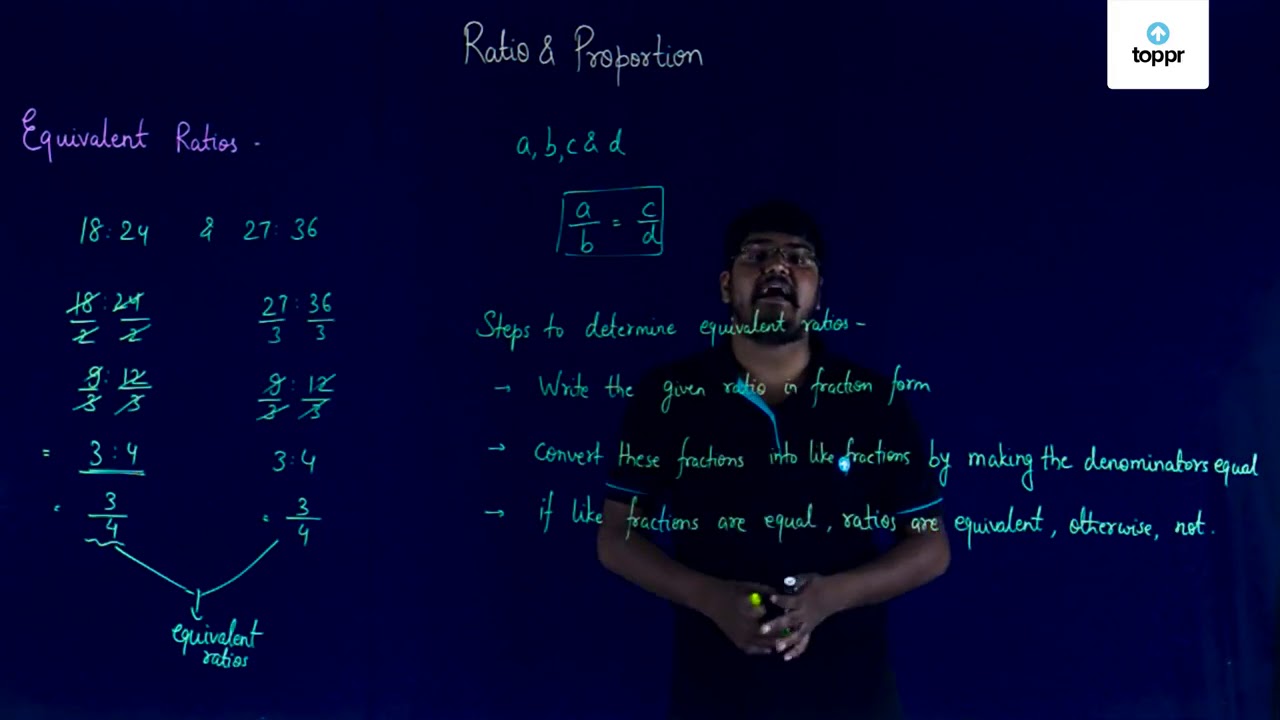 Ratio & Proportion
toppr
Equivalent Ratios -
18:24 & 27:36
18/2 : 24/2
27/3 : 36/3
9/3 : 12/3
9/3 : 12/3
= 3:4
3:4
= 3/4
= 3/4
equivalent
ratios
a, b, c & d
a/b = c/d
Steps to determine equivalent ratios -
→ Write the given ratio in fraction form
→ Convert these fractions into like fractions by making the denominators equal
→ if like fractions are equal, ratios are equivalent, otherwise, not.